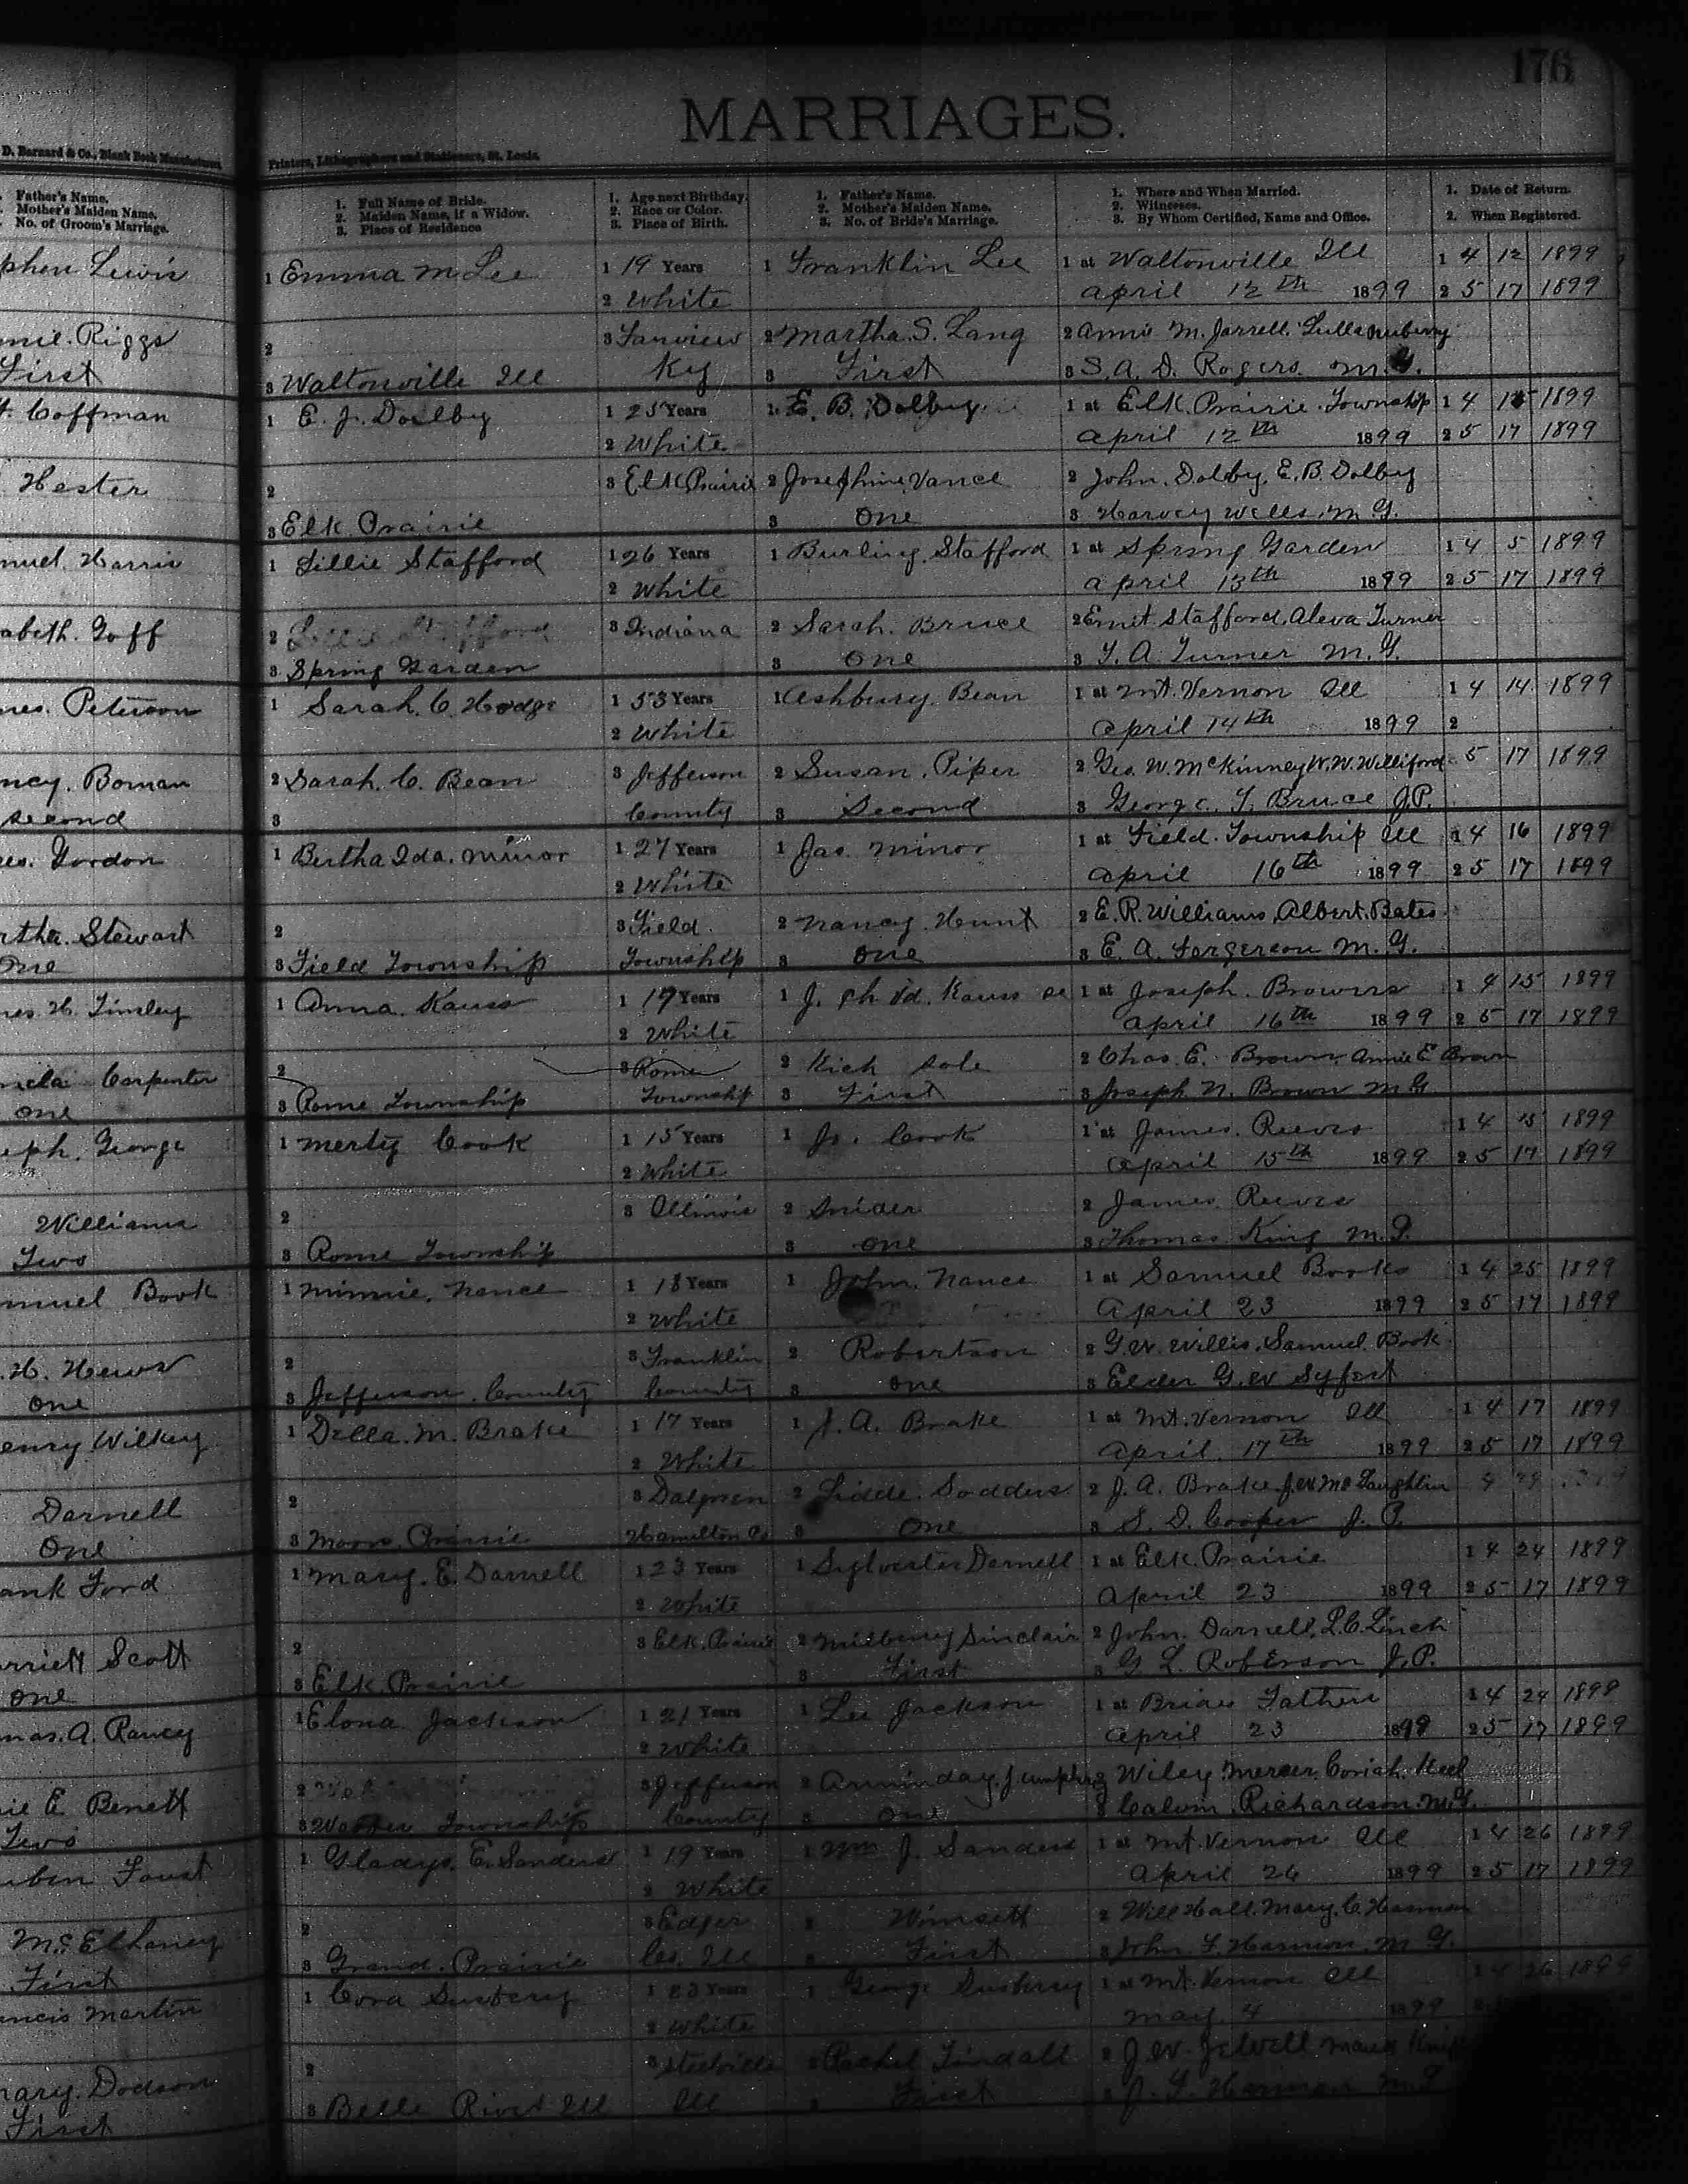 176
MARRIAGES.
D. Barnard & Co., Blank Book Manufacturers
Printers, Lithographers and Stationers, St. Louis.
Father's Name.
Mother's Maiden Name.
No. of Groom's Marriage.
1. Full Name of Bride.
2. Maiden Name, if a Widow.
3. Place of Residence
1. Age next Birthday.
2. Race or Color.
3. Place of Birth.
1. Father's Name.
2. Mother's Maiden Name.
3. No. of Bride's Marriage.
1. Where and When Married.
2. Witnesses.
3. By Whom Certified, Name and Office.
1. Date of Return.
2. When Registered.
phen Lewis 1 Emma M Lee 1 19 Years 1 Franklin Lee 1 at Waltonville Ill 1 4 12 1899
2 White April 12th 1899 2 5 17 1899
Riggs 2 3 2 Martha. S. Lang 2 Annie M. Jarrell.
First 3 Waltonville Ill Ky 3 First 3 S. A. D. Rogers. M.
Coffman 1 E. J. 1 25 Years 1 E. B. Dolby. 1 at Elk. Prairie. Township 1 4 1899
2 White April 12th 1899 2 5 17 1899
Hester 2 3 Elk Prairie 2 Josephine. Vance 2 John. Dolby, E. B. Dolby
3 Elk Prairie 3 One 3 Harvey Wells. M. G.
muel. Harris 1 Lillie Stafford 1 26 Years 1 Burling. Stafford 1 at Spring Garden 1 4 5 1899
2 White April 13th 1899 2 5 17 1899
abeth. Goff 2 3 Indiana 2 Sarah. Bruce 2 Stafford. Aleva Turner
3 Spring Garden 3 One 3 A. Turner M. G.
mes. Peterson 1 Sarah. C. Hodge 1 53 Years 1 Ashbury. Bean 1 at Mt. Vernon Ill 1 4 14 1899
2 White April 14th 1899 2
ncy. Boman 2 Sarah. C. Bean 3 Jefferson 2 Susan. Piper 2 Geo. W. McKinney W. W. Williford 5 17 1899
Second 3 County 3 Second 3 George. Bruce J.P.
es. Gordon 1 Bertha Ida. Minor 1 27 Years 1 Jas. Minor 1 at Field. Township Ill 1 4 16 1899
2 White April 16th 1899 2 5 17 1899
rtha. Stewart 2 3 Field. 2 Nancy. Hunt 2 E. R. Williams, Albert. Bates
One 3 Field Township Township 3 One 3 E. A. M. G.
mes. H. Tinsley 1 Anna. Kauss 1 19 Years 1 J. Kauss 1 at Joseph. Browns 1 4 15 1899
2 White April 16th 1899 2 5 17 1899
Carpenter 2 3 Rome 2 2 Chas. E. Brown Annie E Brown
One 3 Rome Township Township 3 First 3 Joseph N. Brown M G
seph. George 1 Merty Cook 1 15 Years 1 Cook 1 at James. Reeves 1 4 15 1899
2 White April 15th 1899 2 5 17 1899
Williams 2 3 Illinois 2 Snider 2 James. Reeves
Two 3 Rome Township 3 One 3 Thomas King M.
muel Book 1 Minnie. Nance 1 18 Years 1 John. Nance 1 at Samuel Books 1 4 25 1899
2 White April 23 1899 2 5 17 1899
H. Hews 2 3 Franklin 2 Robertson 2 G. W. Willis. Samuel. Book
One 3 Jefferson. County County 3 One 3 Elder G. W
enry. Wilkey 1 Della. M. Brake 1 17 Years 1 A. Brake 1 at Mt. Vernon Ill 1 4 17 1899
2 White April. 17th 1899 2 5 17 1899
Darnell 2 3 2 2 J. A. Brake. J. W. McLaughlin 4 29
One 3 Prairie Hamilton Co 3 One 3 S. D. Cooper J. P.
ank Ford 1 Mary. E. Darnell 1 23 Years 1 Sylvester Dernell 1 at Elk. Prairie 1 4 24 1899
2 White April 23 1899 2 5 17 1899
rriett Scott 2 3 Elk. Prairie 2 Sinclair 2 John. Darnell, L. C. Linch
One 3 Elk. Prairie 3 First 3 G. L. Roberson J. P.
mas. A. Rancy 1 Elona Jackson 1 21 Years 1 Lee Jackson 1 at Brides Fathers 1 4 24 1899
2 White April 23 1899 2 5 17 1899
E. Benett 2 3 Jefferson 2 2 Wiley. Mercer.
Two 3 Township County 3 One 3 Calvin. Richardson. M. G.
uben Foust 1 Gladys. E. Sanders 1 19 Years 1 Wm J. Sanders 1 at Mt. Vernon Ill 1 4 26 1899
2 White April 26 1899 2 5 17 1899
McElhaney 2 3 Edger 2 Wimsett 2 Will Hall. Mary. C. Harmon
First 3 Grand. Prairie Co. Ill 3 First 3 John. Harmon. M. G.
ncis Martin 1 Cora 1 23 Years 1 George 1 at Mt. Vernon Ill 1 4 26 1899
2 White May. 4 1899
mary. Dodson 2 3 2 Rachel Tindall 2 J. W.
First 3 Belle River Ill Ill 3 First 3 Harmon M. G